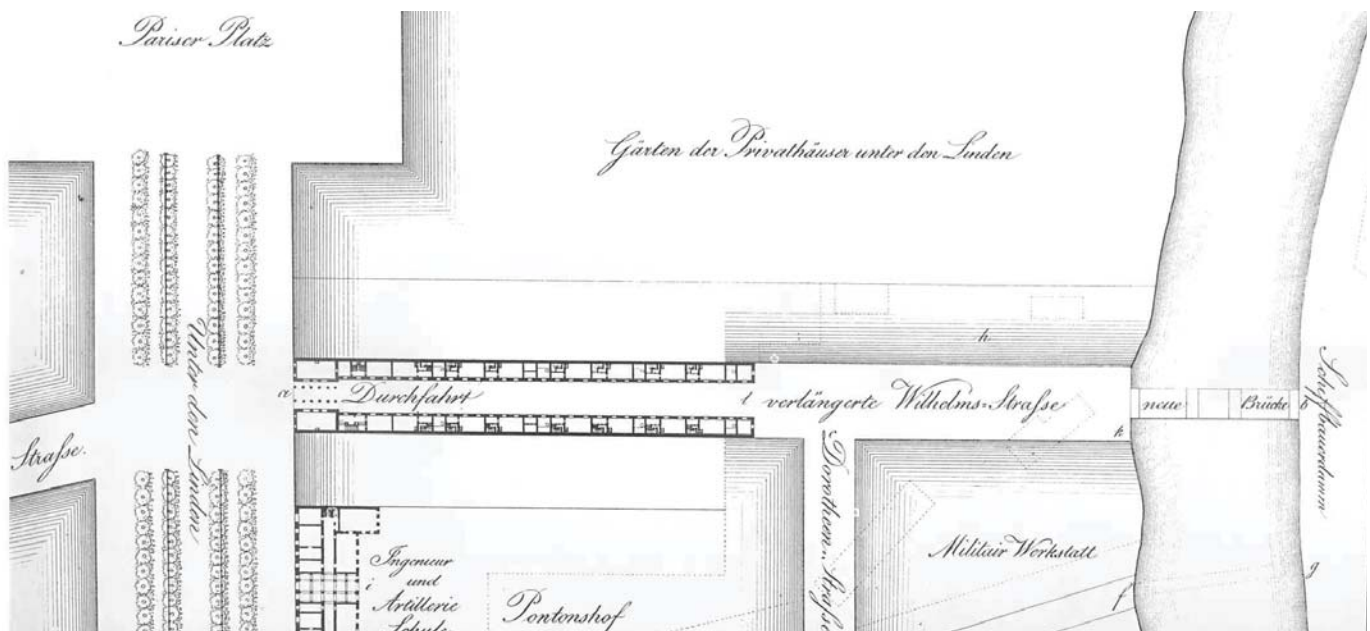 Pariser Platz
Gärten der Privathäuser unter den Linden
Unter den Linden
Straſse.
a
Durchfahrt
l
verlängerte Wilhelms=Straſse
h
k
neue
Brücke
b
Schiffbauerdamm
Dorotheen-Straſse
Militair Werkstatt
f
g
Ingenieur
und
i
Artillerie
Schule
Pontonshof